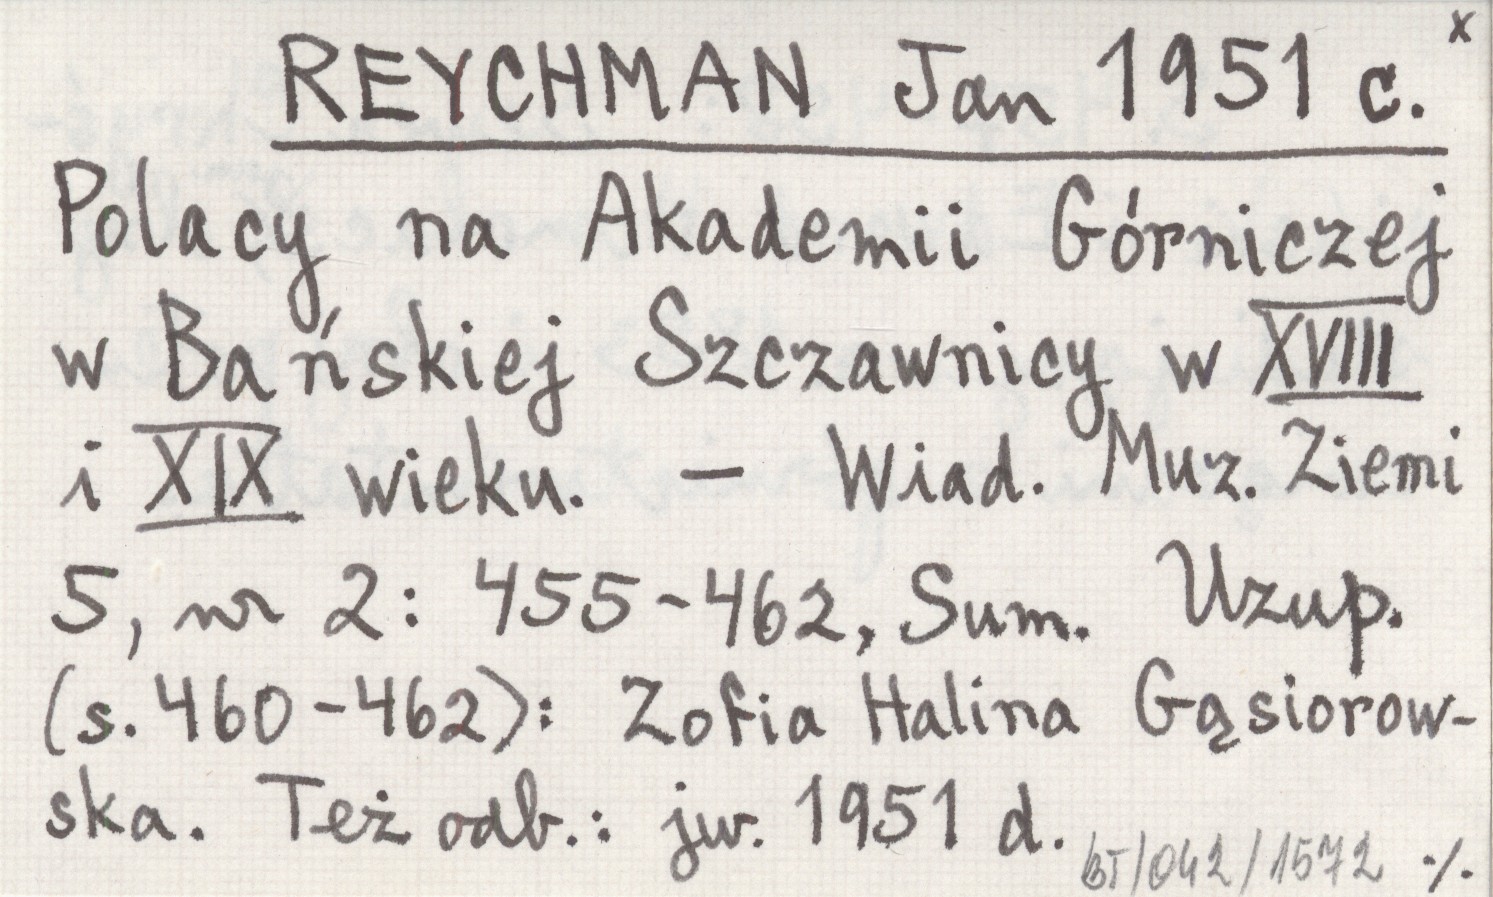 x
REYCHMAN Jan 1951 c.
Polacy na Akademii Górniczej
w Bańskiej Szczawnicy w XVIII
i XIX wieku. – Wiad. Muz. Ziemi
5, nr 2: 455-462, Sum. Uzup.
(s. 460-462): Zofia Halina Gąsiorow-
ska. Też odb.: jw. 1951 d.
BT/042/1572 ·/.